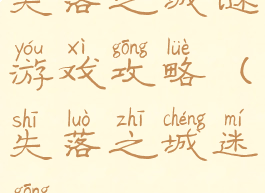 失落之城谜
yóu xì gōng lüè
游戏攻略（
shī luò zhī chéng mí
失落之城迷
gōng